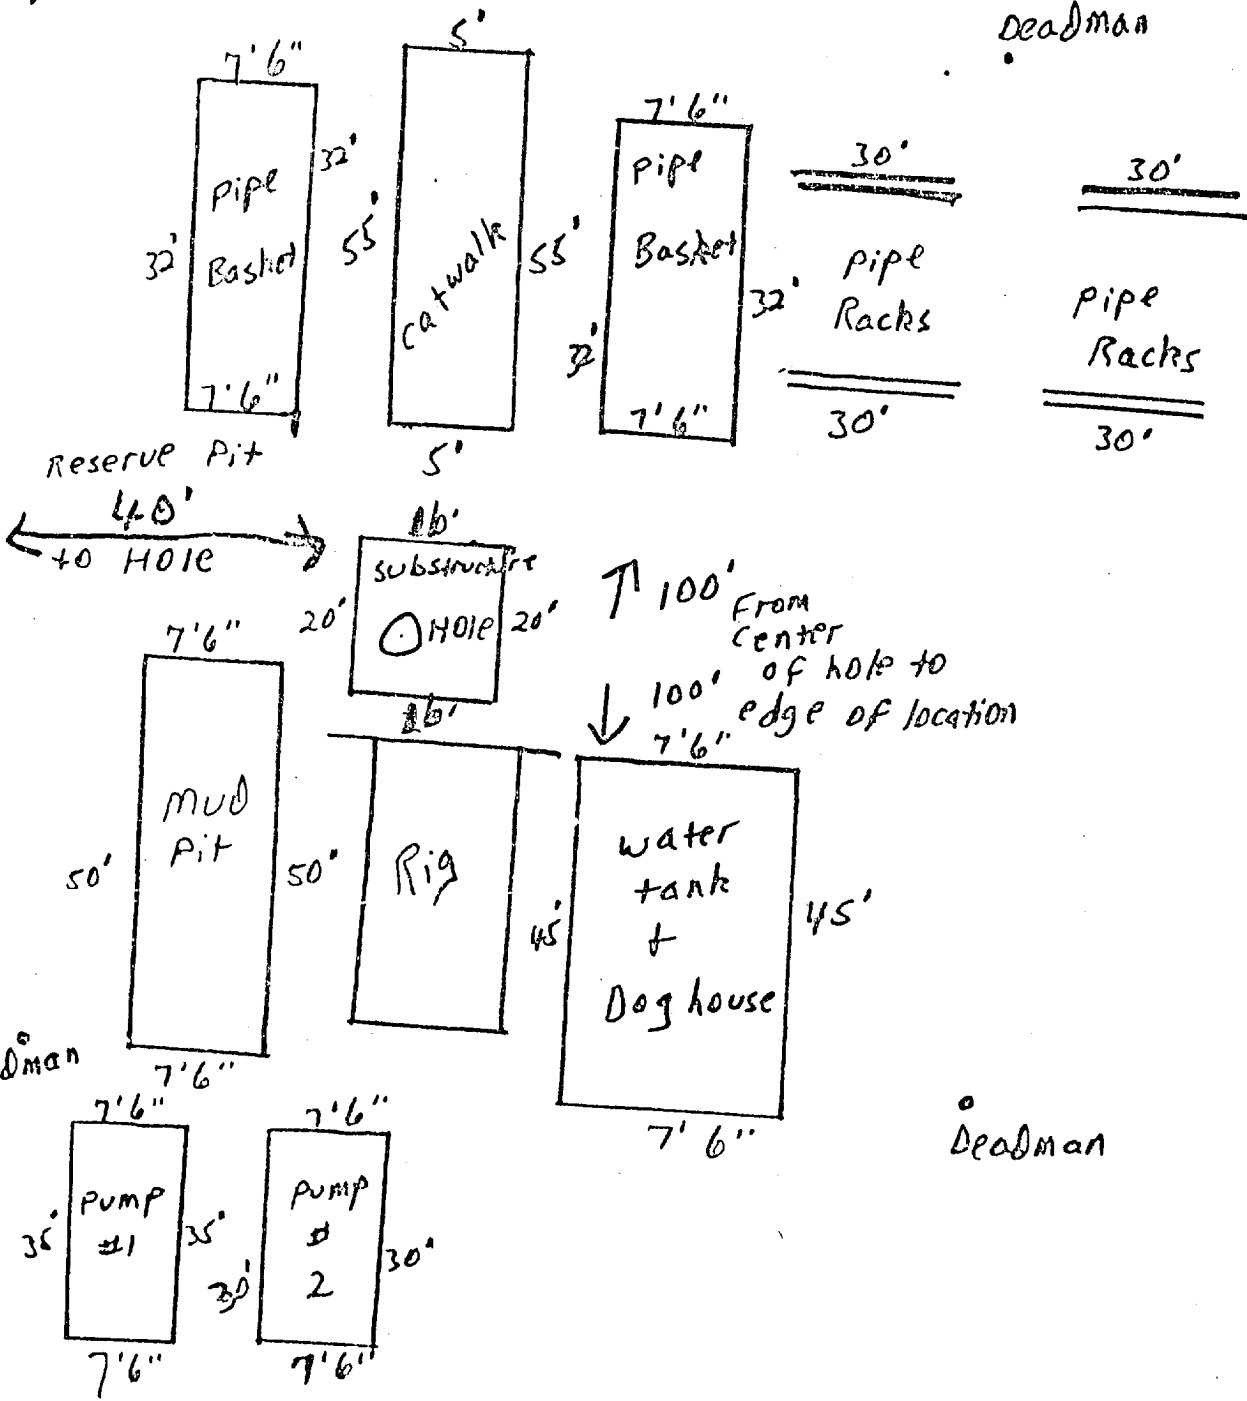 Deadman
5'
7'6"
7'6"
30'
30'
32'
Pipe
Basket
32'
55'
Catwalk
55'
Pipe
Basket
32'
32'
Pipe
Racks
Pipe
Racks
7'6"
5'
7'6"
30'
30'
Reserve Pit
40'
to Hole
16'
substructure
20'
Hole
20'
16'
100' From
center
of hole to
100' edge of location
7'6"
Mud
Pit
50'
50'
7'6"
Rig
7'6"
water
tank
+
Dog house
45'
45'
7'6"
dman
Deadman
7'6"
Pump
#1
35'
35'
7'6"
7'6"
Pump
#
2
30'
30'
7'6"